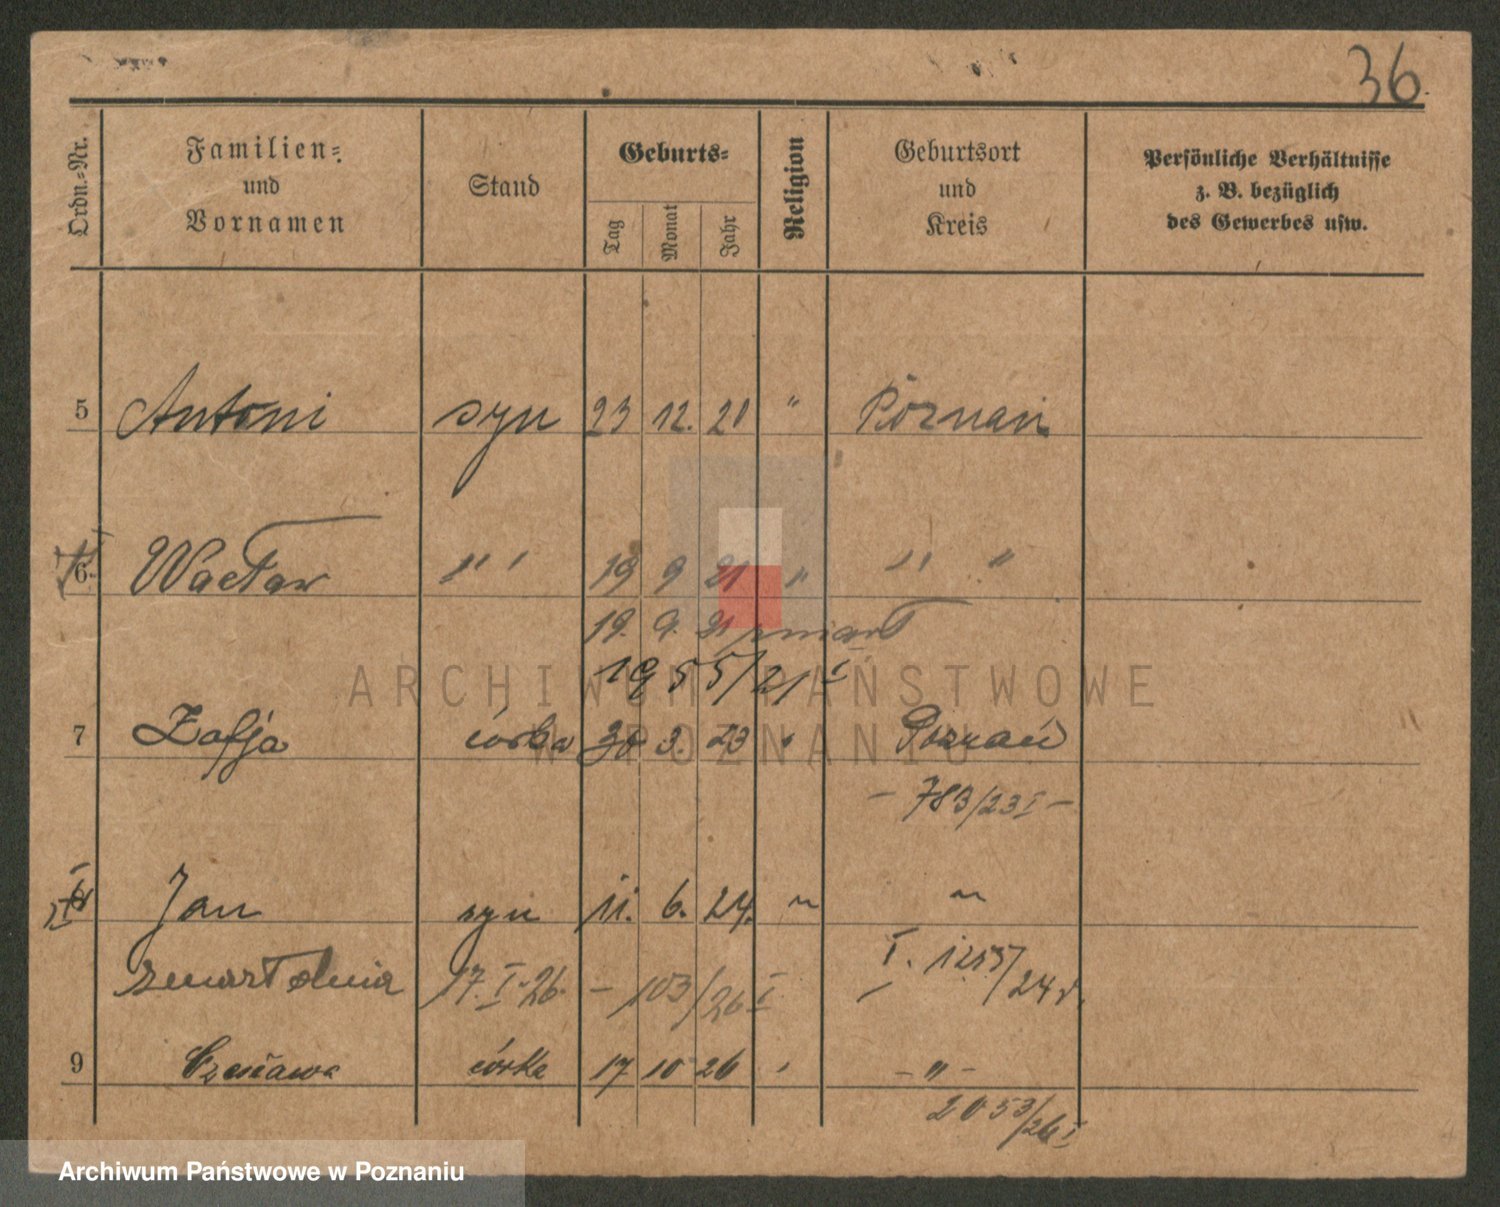 36.
Ordn.-Nr.
Familien-
und
Vornamen
Stand
Geburts-
Tag
Monat
Jahr
Religion
Geburtsort
und
Kreis
Persönliche Verhältnisse
z. B. bezüglich
des Gewerbes usw.
5 Antoni syn 23 12. 20 " Poznań
6. Wacław " " 19 9 21 " " "
19. 9. 21 zmarł
1955/21 I
7 Zofja córka 30 3. 23 " Poznań
- 783/23 I -
8 Jan syn 11. 6. 24. " "
zmarł dnia 17. I. 26. - 103/26 I
I. 1253/24 r.
9 Czesława córka 17 10 26 " - " -
2053/26 I
ARCHIWUM PAŃSTWOWE
W POZNANIU
Archiwum Państwowe w Poznaniu